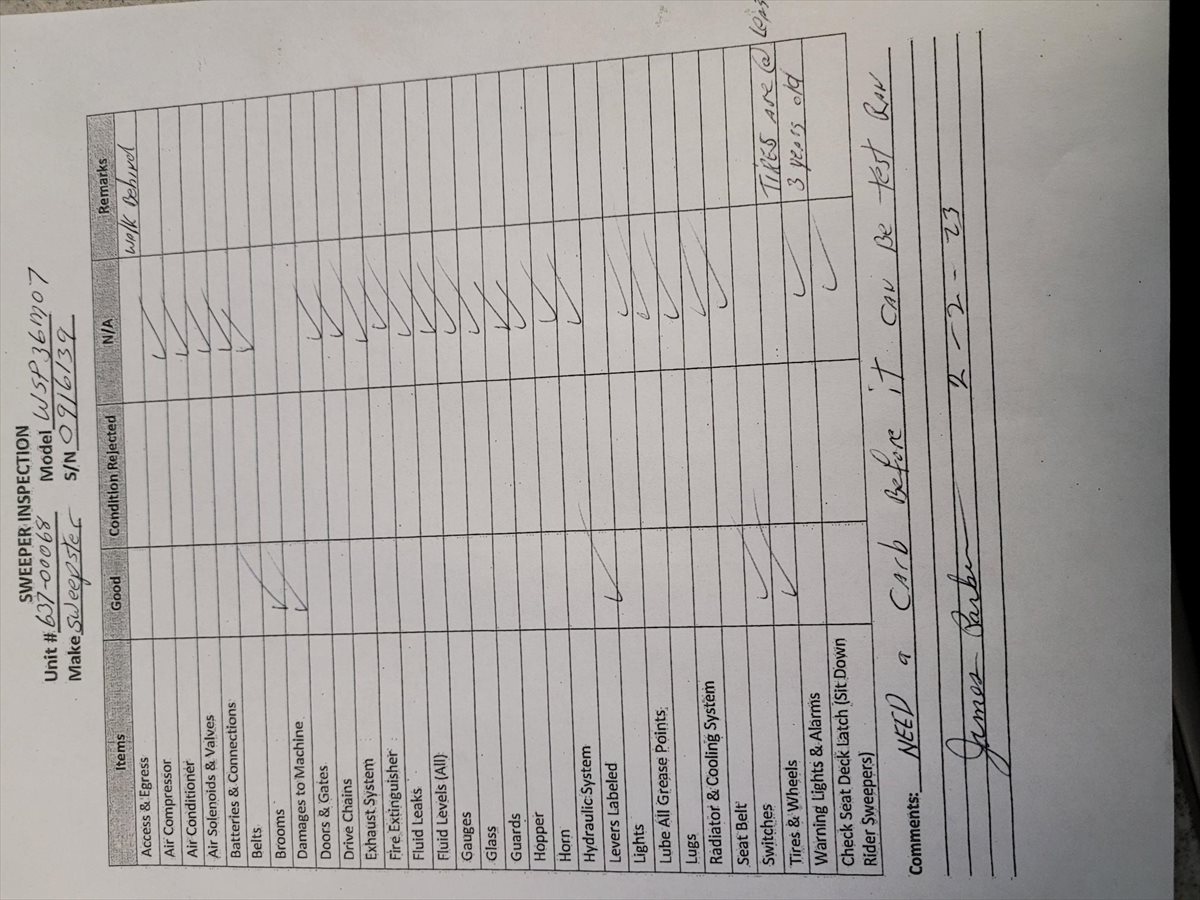 SWEEPER INSPECTION
Unit # 637-00068 Model WSP36M07
Make Sweepster S/N 0916139
Items Good Condition Rejected N/A Remarks
Access & Egress ✓ Walk Behind
Air Compressor ✓
Air Conditioner ✓
Air Solenoids & Valves ✓
Batteries & Connections ✓
Belts
Brooms ✓
Damages to Machine ✓
Doors & Gates ✓
Drive Chains ✓
Exhaust System ✓
Fire Extinguisher ✓
Fluid Leaks ✓
Fluid Levels (All) ✓
Gauges ✓
Glass ✓
Guards ✓
Hopper ✓
Horn ✓
Hydraulic System ✓
Levers Labeled ✓
Lights ✓
Lube All Grease Points ✓
Lugs ✓
Radiator & Cooling System ✓
Seat Belt ✓
Switches ✓ TIRES are @ least
Tires & Wheels ✓ 3 years old
Warning Lights & Alarms ✓
Check Seat Deck Latch (Sit Down ✓
Rider Sweepers)
Comments: NEED a Carb Before it can Be test Ran
James Barber 2-2-23